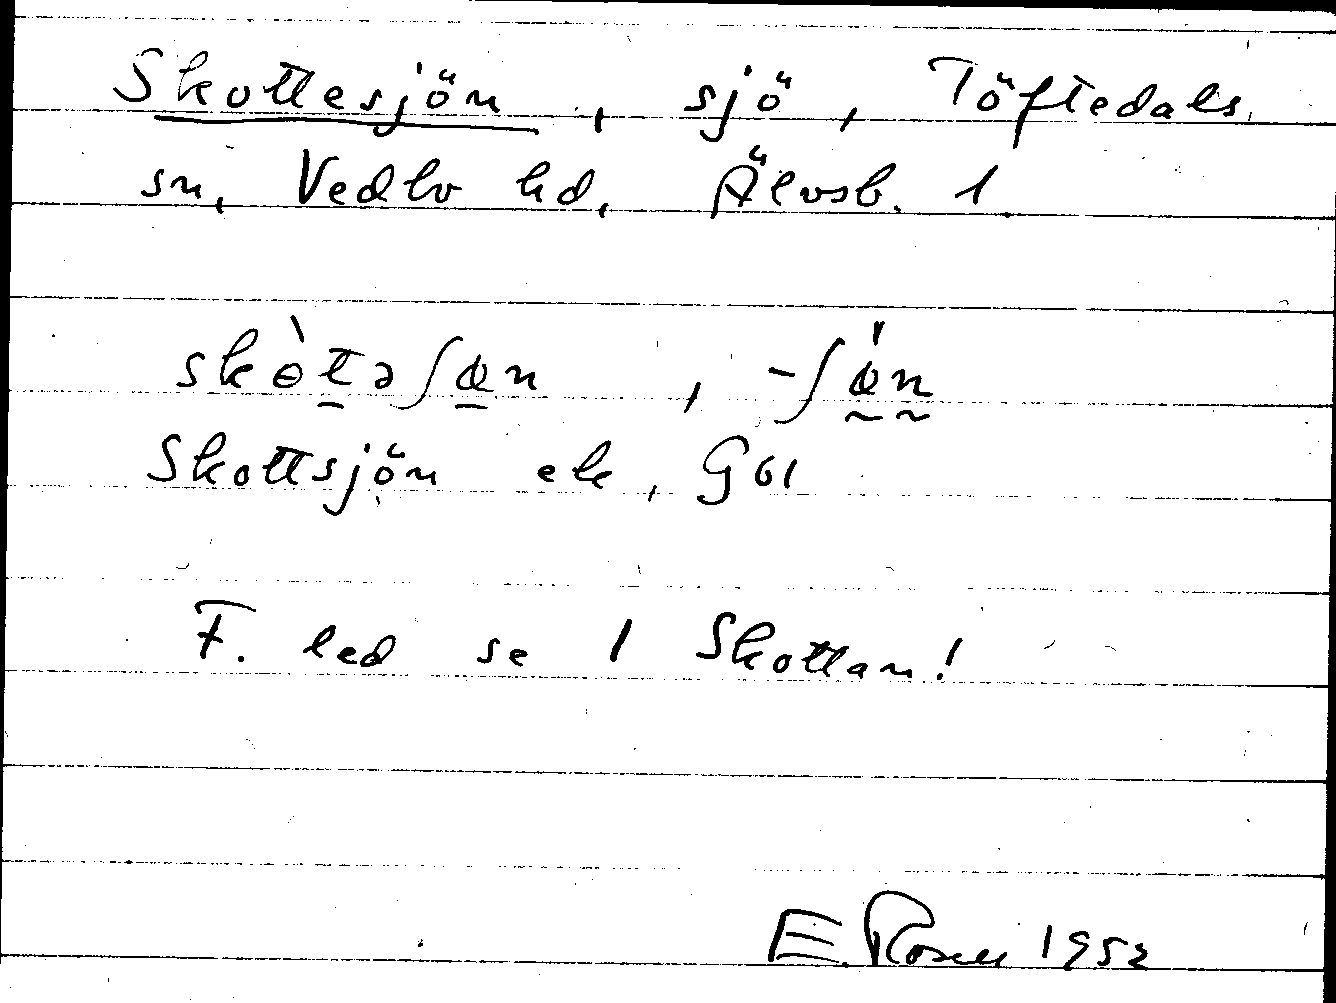 Skottesjön, sjö, Töftedals
sn, Vedbo hd, Älvsb. l.
skɵ̀təʃøn, -ʃøn
Skottsjön ek, G61
F. led se 1 Skottan!
E. Rosell 1952